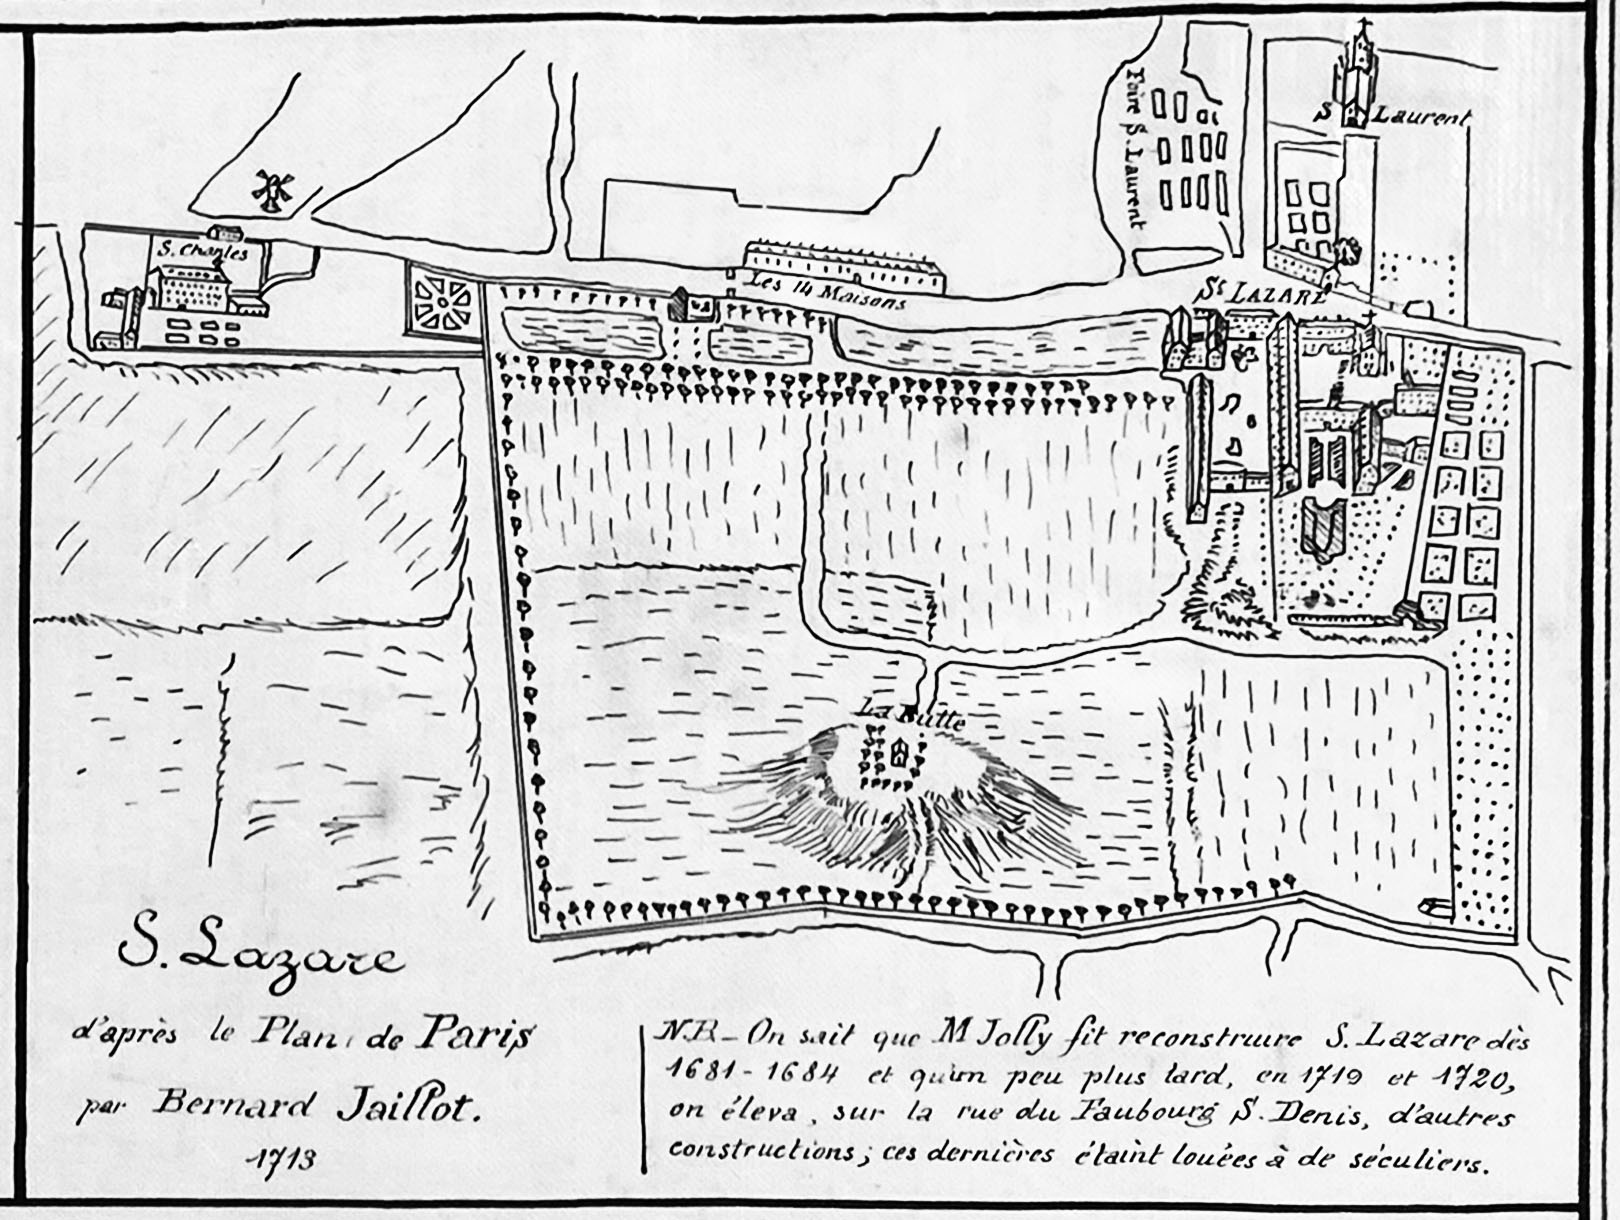 Foire S. Laurent
S Laurent
S. Charles
Les 14 Maisons
St LAZARE
La Butte
S. Lazare
d'après le Plan de Paris
par Bernard Jaillot.
1713
N.B_ On sait que M Jolly fit reconstruire S. Lazare dès
1681-1684 et qu'un peu plus tard, en 1719 et 1720,
on éleva, sur la rue du Faubourg S. Denis, d'autres
constructions; ces dernières étaint louées à de séculiers.